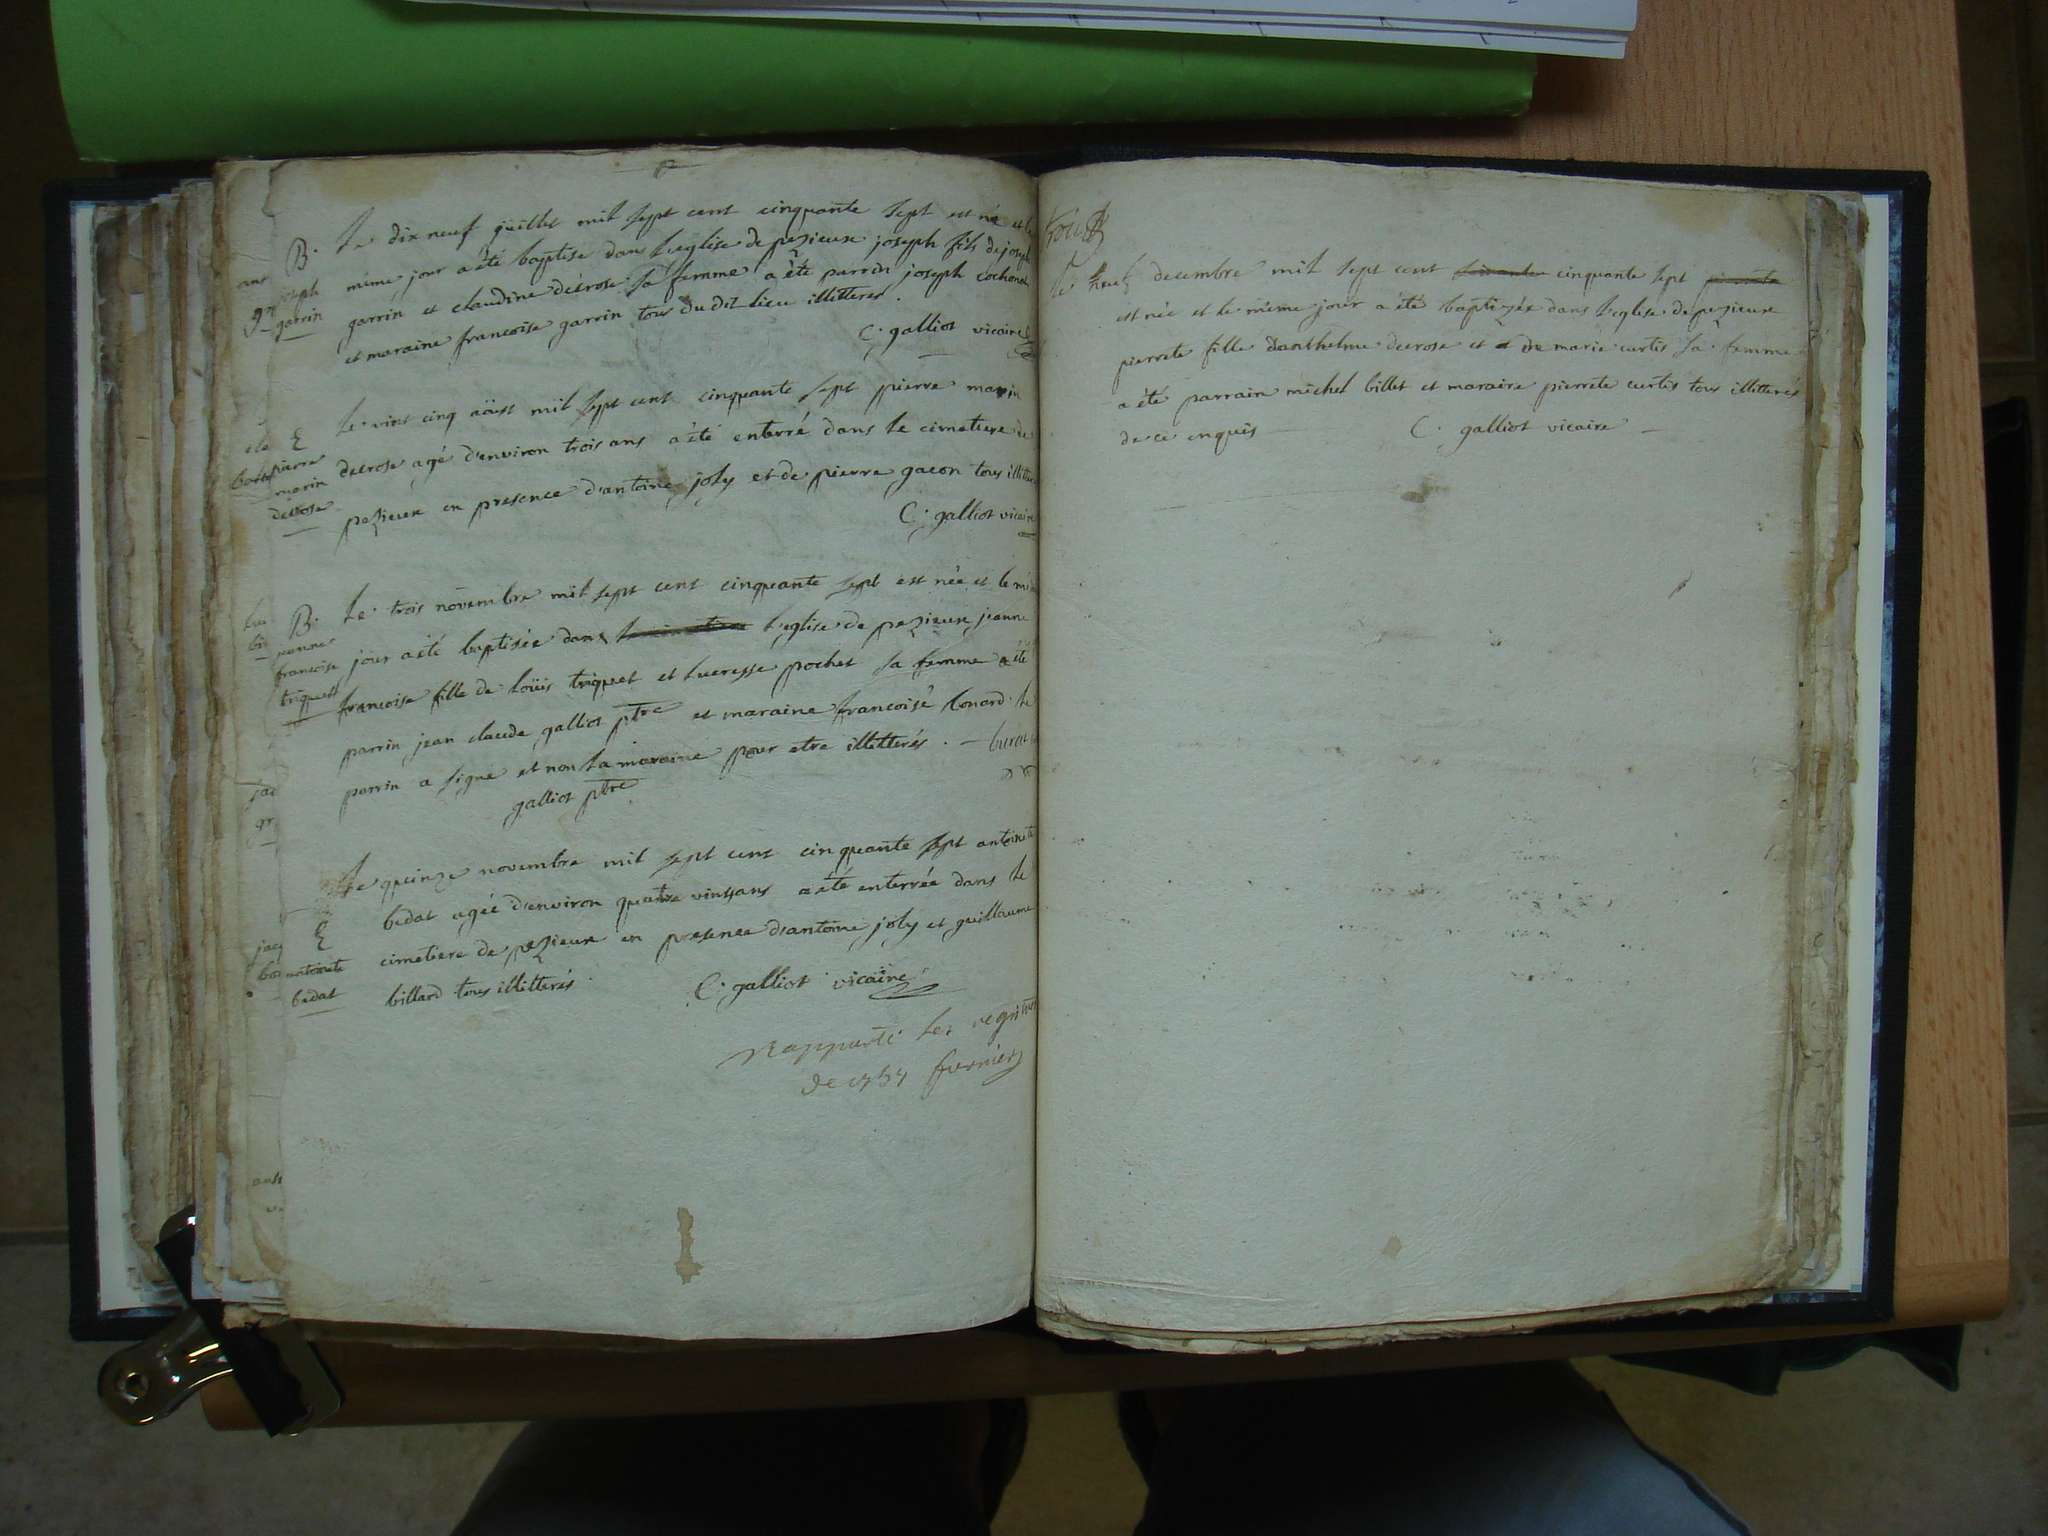 B. Le dix neuf juillet mil sept cent cinquante sept est né et le
joseph même jour a été baptise dans l'eglise de pezieux joseph fils de joseph
garrin garrin et claudine décrose sa femme a été parrin joseph cochonat
et maraine francoise garrin tous du dit lieu illitteres.
C. galliot vicaire
E Le vint cinq aöust mil sept cent cinquante sept pierre marin
pierre marin decrose decrose agé d'environ trois ans a été enterré dans le cimetiere de
pezieux en presence d'antoine joly et de pierre gacon tous illitteres
C. galliot vicaire
B. Le trois novembre mil sept cent cinquante sept est née et le même
jeanne francoise jour a été baptisée dans l'eglise de pezieux jeanne
triquet francoise fille de loüis triquet et lucresse pochet sa femme a été
parrin jean claude galliot ptre et maraine francoise Conard le
parrin a signé et non la maraine pour etre illitterés.
galliot ptre
Le quinze novembre mil sept cent cinquante sept antoinete
E bedat agée d'environ quatre vints ans a été enterrée dans le
antoinete cimetiere de pezieux en presence d'antoine joly et guillaume
bedat billard tous illitterés
C. galliot vicaire
Rapporté les registres
de 1757 furnier
Le neuf decembre mil sept cent cinquante sept
est née et le même jour a été baptizée dans l'eglise de pezieux
pierrete fille d'anthelme decrose et de marie curtis sa femme
a été parrain michel billet et maraire pierrete curtis tous illitterés
de ce enquis C. galliot vicaire